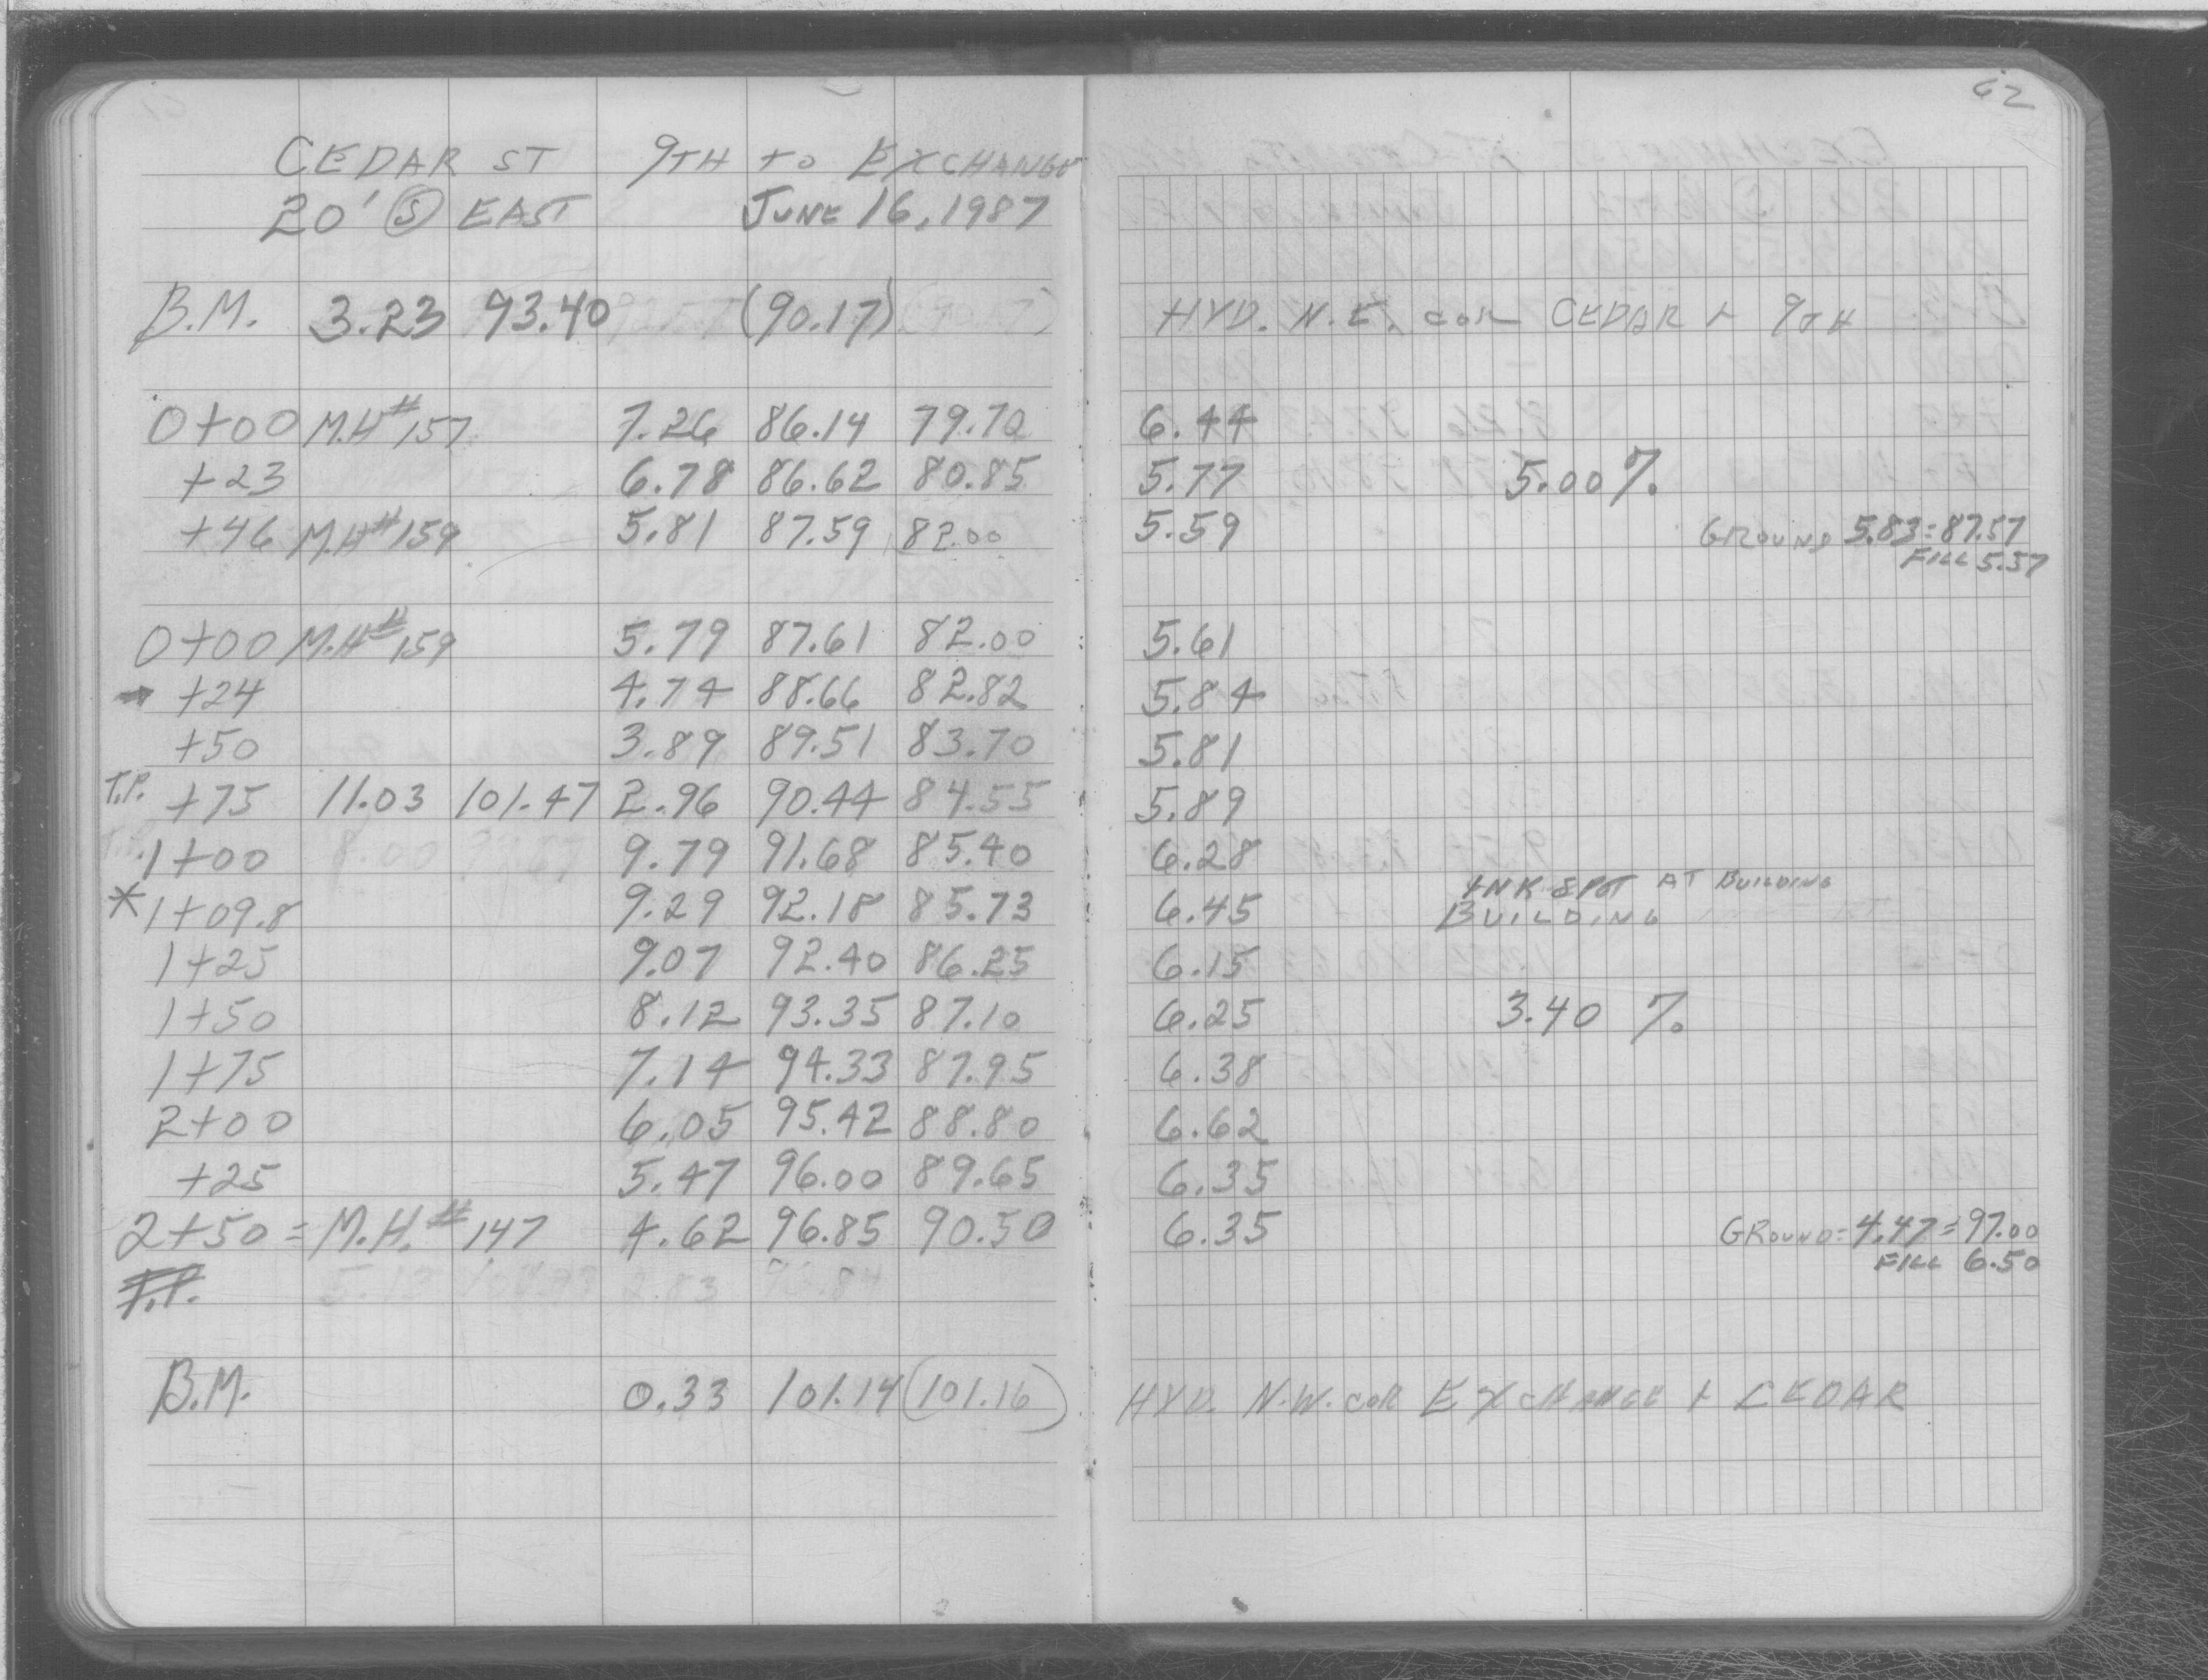 62
CEDAR ST 9TH to EXCHANGE
20' Ⓢ EAST JUNE 16, 1987
B.M. 3.23 93.40 (90.17) HYD. N.E. COR CEDAR + 9TH
0+00 M.H#157 7.26 86.14 79.70 6.44
+23 6.78 86.62 80.85 5.77 5.00%
+46 M.H#159 5.81 87.59 82.00 5.59 GROUND 5.83=87.57
FILL 5.57
0+00 M.H#159 5.79 87.61 82.00 5.61
+24 4.74 88.66 82.82 5.84
+50 3.89 89.51 83.70 5.81
T.P. +75 11.03 101.47 2.96 90.44 84.55 5.89
1+00 9.79 91.68 85.40 6.28
INK SPOT AT BUILDING
*1+09.8 9.29 92.18 85.73 6.45 BUILDING
1+25 9.07 92.40 86.25 6.15
1+50 8.12 93.35 87.10 6.25 3.40 %
1+75 7.14 94.33 87.95 6.38
2+00 6.05 95.42 88.80 6.62
+25 5.47 96.00 89.65 6.35
2+50 = M.H.#147 4.62 96.85 90.50 6.35 GROUND=4.47=97.00
FILL 6.50
T.P.
B.M. 0.33 101.14 (101.16) HYD. N.W. COR EXCHANGE + CEDAR